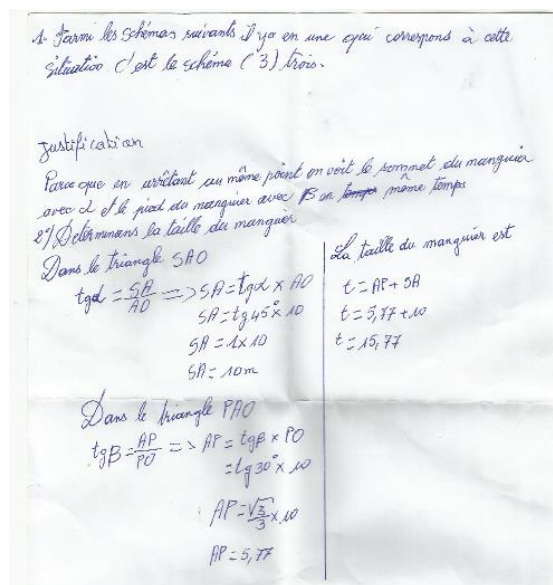 1- Parmi les schémas suivants il ya en une qui correspons à cette
situatio c'est le schéma (3) trois.
justification
Parce que en arrêtant au même point on voit le sommet du manguier
avec α et le pied du manguier avec β en temps même temps
2°/ Déterminons la taille du manguier
Dans le triangle SAO
tgα = SA/AO => SA = tgα × AO
SA = tg45° × 10
SA = 1×10
SA = 10m
Dans le triangle PAO
tgβ = AP/PO => AP = tgβ × PO
= tg30° × 10
AP = √3/3 × 10
AP = 5,77
La taille du manguier est
t = AP + SA
t = 5,77 + 10
t = 15,77